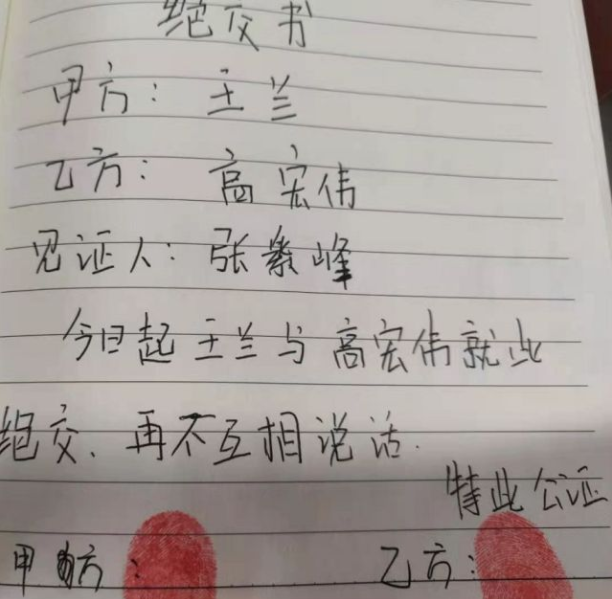 绝交书
甲方：王兰
乙方：高宏伟
见证人：张峰
今日起王兰与高宏伟就此
绝交、再不互相说话.
特此公证
甲方：
乙方：